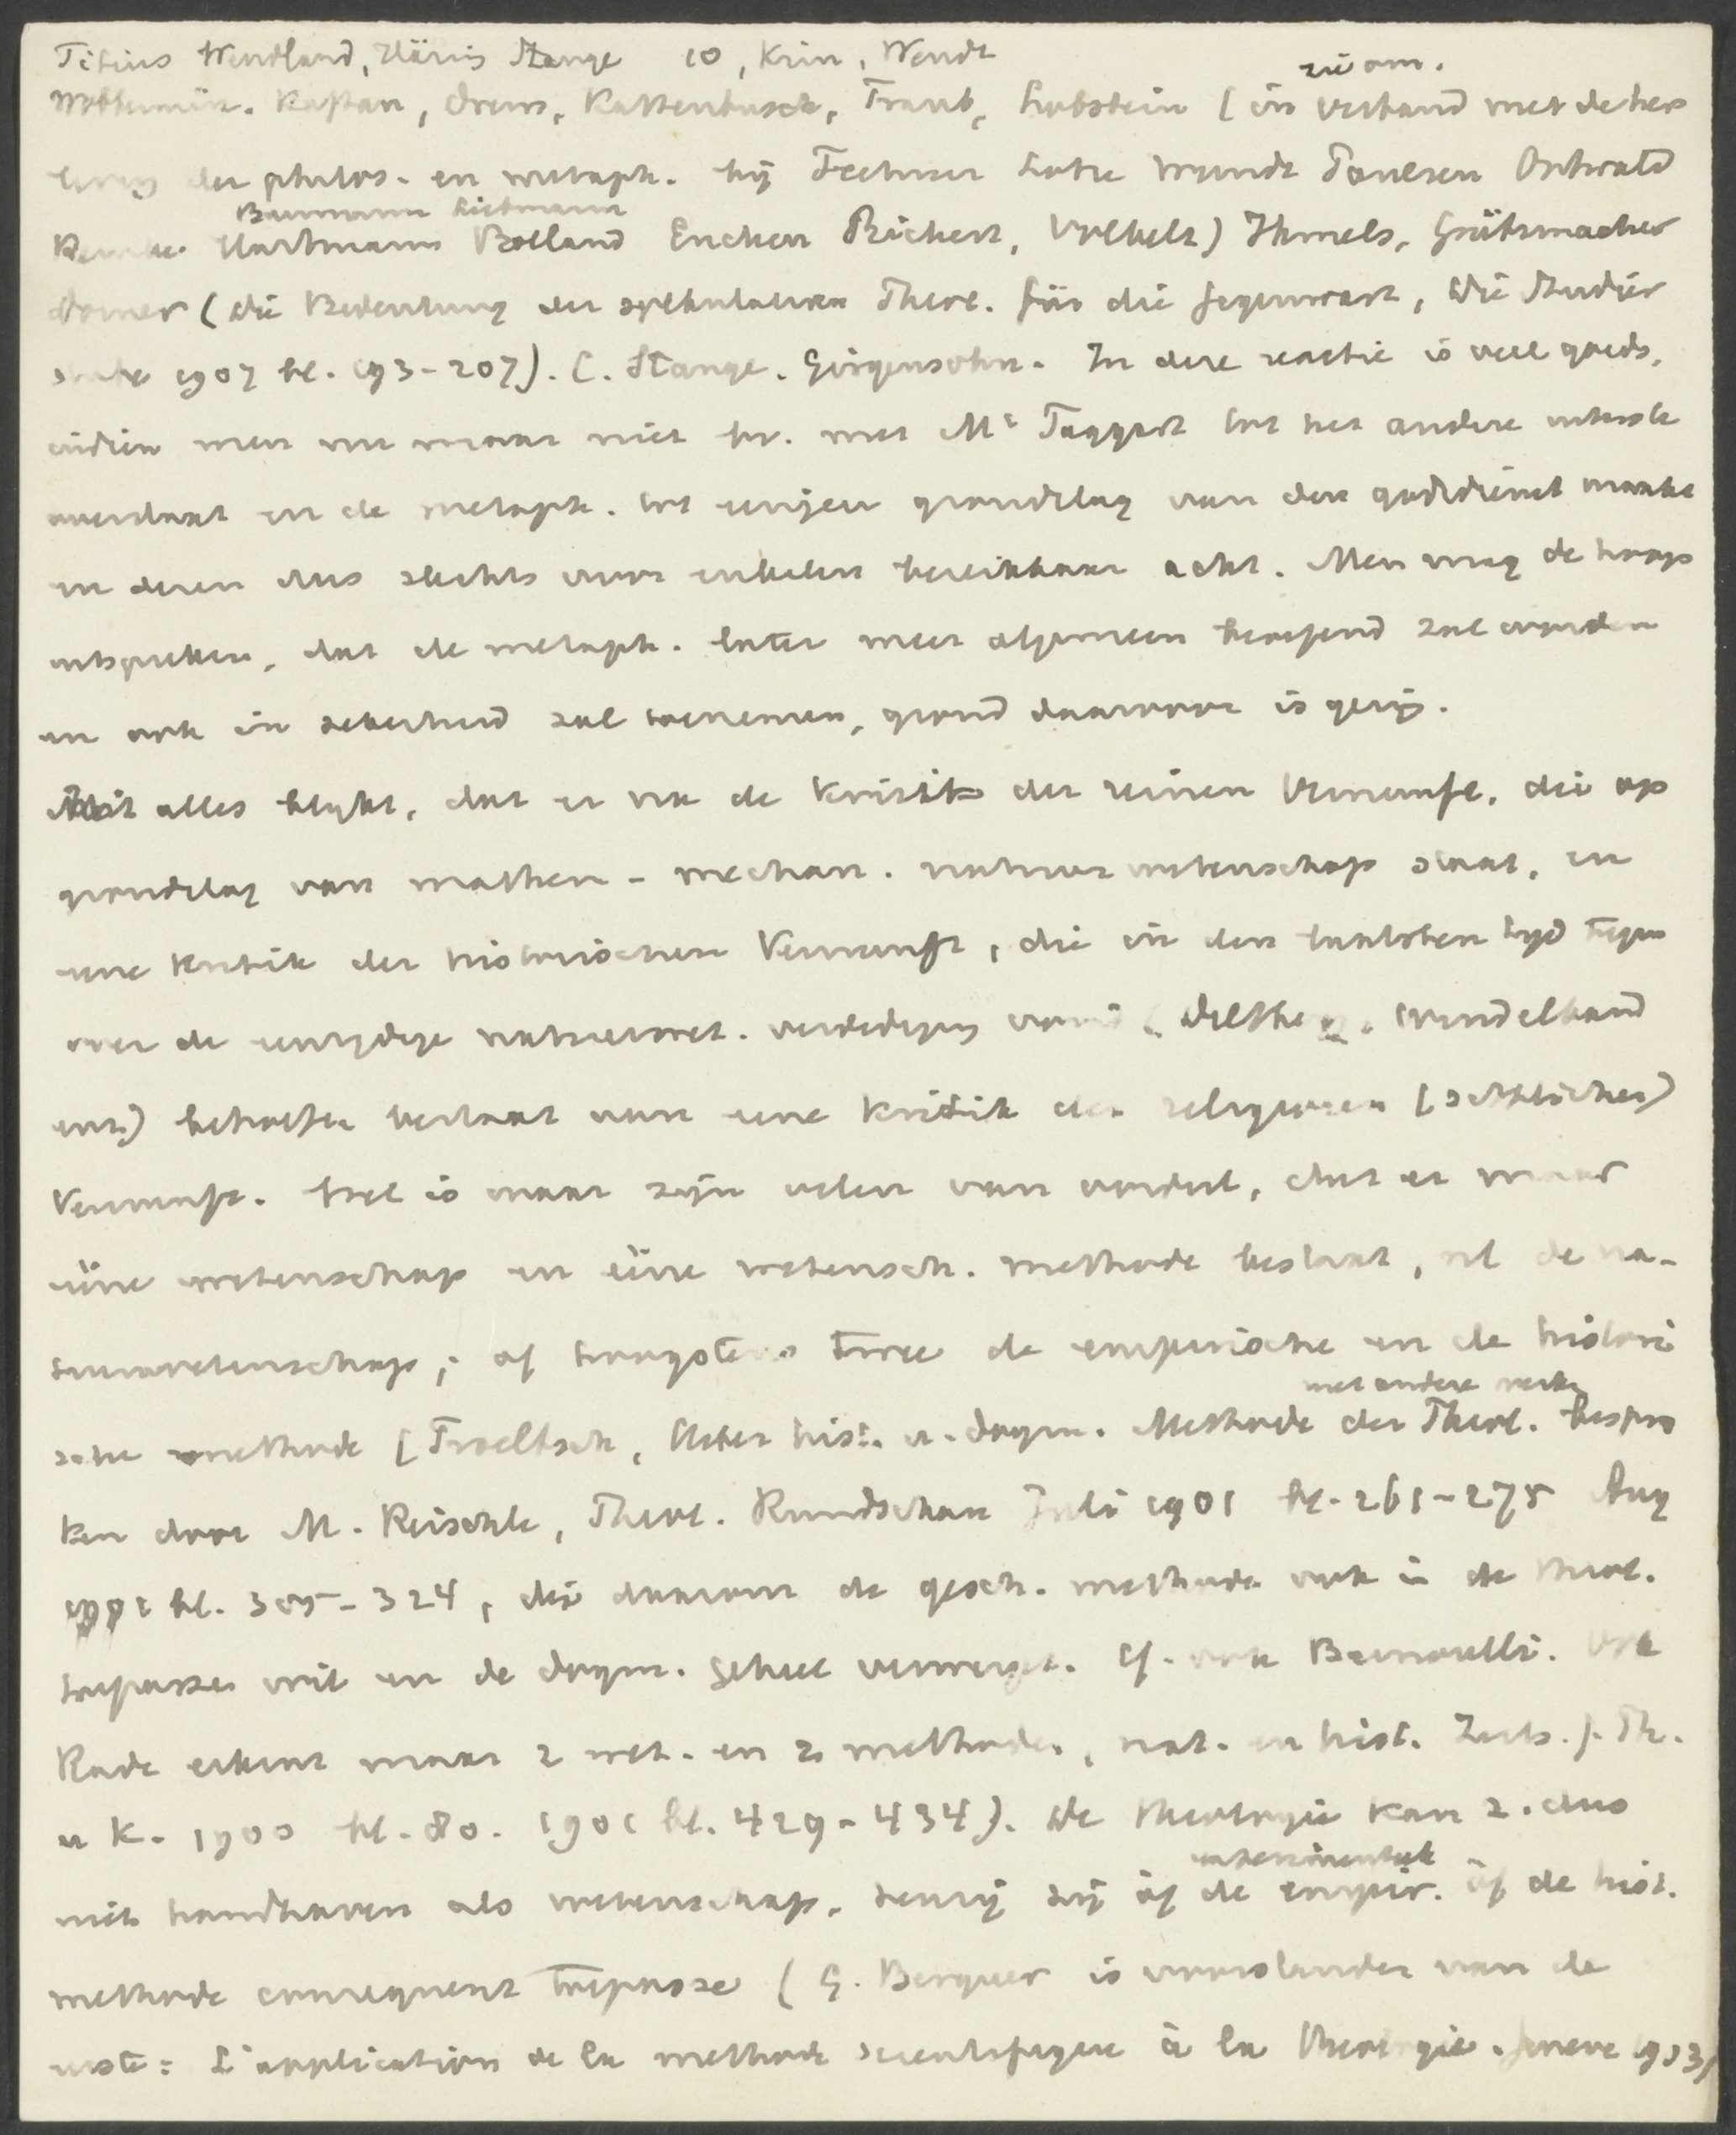 Titius Wendland, Häring Stange 10, Krin, Wendt
zie om.
Wobbermin. Kaftan, Drews, Kattenbusch, Traub, Lobstein (in verband met de her
leving der philos. en metaph. bij Fechner Lotze Wundt Paulsen Ostwald
Baumann Liebmann
Hartmann Bolland Eucken Rickert, Volkelt) Ihmels, Grützmacher
Dorner (Die Bedeutung der spekulativen Theol. für die Gegenwart, Die Studier
stube 1907 bl. 193-207). C. Stange. Girgensohn. In deze reactie is veel goeds,
indien men nu maar niet bv. met Mc Taggert tot het andere uiterste
overslaat en de metaph. tot eenigen grondslag van den godsdienst maakt
en dezen dus slechts voor enkelen bereikbaar acht. Men mag de hoop
uitspreken, dat de metaph. later meer algemeen beoefend zal worden
en ook in zekerheid zal toenemen, grond daarvoor is gering.
Uit alles blijkt, dat er na de Kritik der reinen Vernunft, die op
grondslag van mathem-mechan. natuurwetenschap staat, en
eene Kritik der historischen Vernunft, die in den laatsten tijd tegen
over de eenzijdige natuurwet. verdediging vond (Dilthey, Windelband
enz) behoefte bestaat aan eene Kritik der religiösen (sittlichen)
Vernunft. Het is maar zijn velen van oordeel, dat er maar
ééne wetenschap en ééne wetensch. methode bestaat, nl de na-
tuurwetenschap; of hoogstens twee de empirische en de histori
met andere werken
sche methode (Troeltsch, Ueber hist. u. dogm. Methode der Theol. bespro
ken door M. Reischle, Theol. Rundschau Juli 1901 bl. 261-275 Aug
1901 bl. 305-324, die daarom de gesch. methode ook in de theol.
toepassen wil en de dogm. geheel verwerpt. Cf. ook Bernoulli. Ook
Rade erkent maar 2 wet. en 2 methoden, nat. en hist. Zeits. f. Th.
u K. 1900 bl. 80. 1901 bl. 429-434). De theologie kan z. dus
niet handhaven als wetenschap, tenzij zij òf de empir. òf de hist.
methode consequent toepasse (G. Berguer is voorstander van de
eerste: L'application de la methode scientifique à la theologie. Geneve 1903)